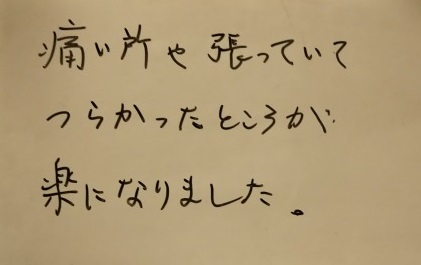 痛い所や張っていて
つらかったところが
楽になりました。